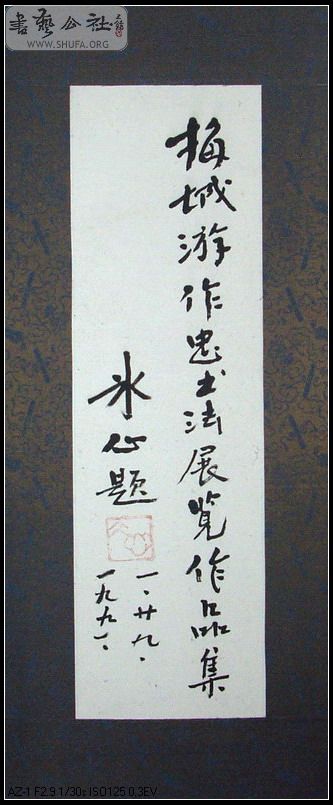 書藝公社
WWW.SHUFA.ORG
梅城游作忠书法展览作品集
冰心题
一、廿九、
一九九一、
AZ-1 F2.9 1/30s ISO125 0.3EV